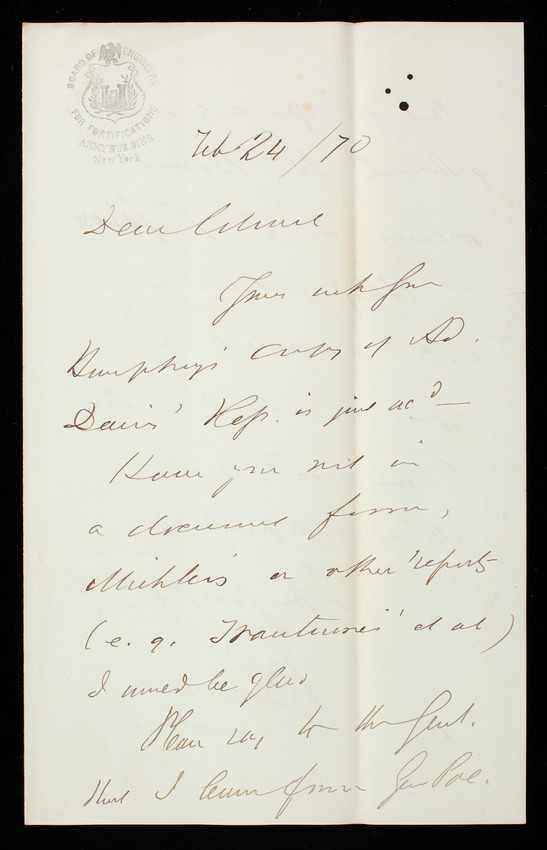 BOARD OF ENGINEERS
FOR FORTIFICATIONS
ARMY BUILDING
New York
Feb 24/70
Dear Colonel
Yours with Gen
Humphreys' copy of Ad.
Davis' Rep. is just ac'd
Have you not in
a document form,
Michler's or other reports
(e.g. Trautwine's et al)
I would be glad
Please say to the Genl.
that I learn from Gen Poe.